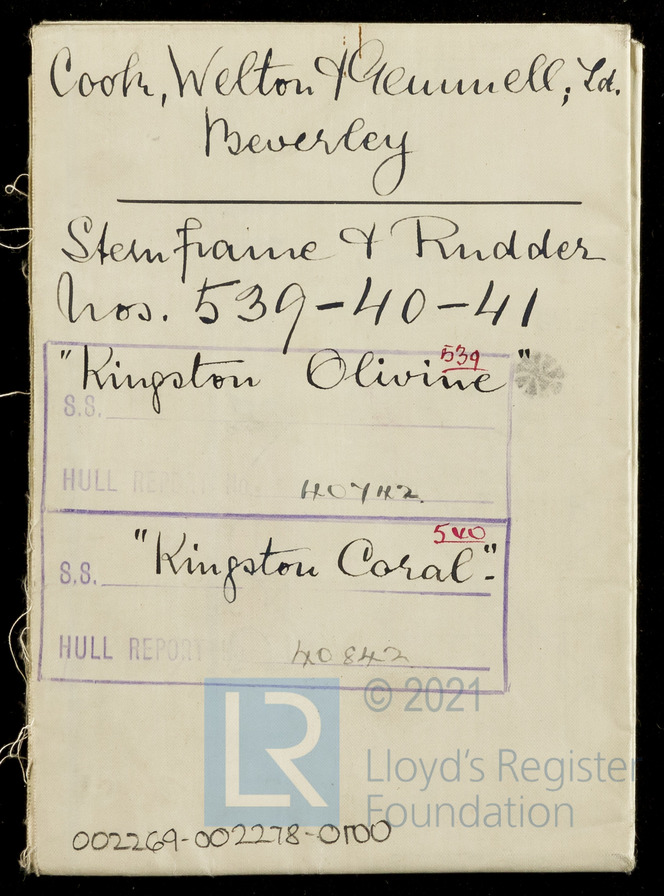 Cook, Welton & Gemmell, Ld.
Beverley
Sternframe & Rudder
Nos. 539-40-41
539
"Kingston Olivine"
S.S.
HULL REPORT No. 40742.
540
S.S. "Kingston Coral".
HULL REPORT 40842
LR
© 2021
Lloyd's Register
Foundation
002269-002278-0100